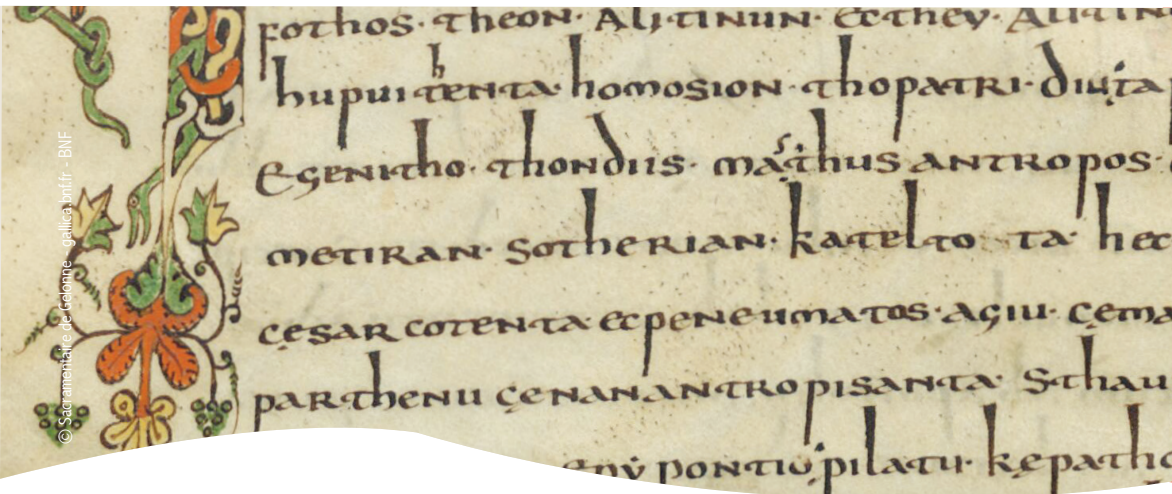 fothos· theon· Alitinun· Ecthey· Aliti
hupuitenta· homosion· thopatri· diuta
h
Egenitho· thondiis· mathus antropos·
metiran· sotherian· katelto ta· het
cesar cotenta· ecpeneumatos· agiu· cema
parthenu cenanantropisanta· Sthau
pontio pilatu· kepatho
© Sacramentaire de Gelonne - gallica.bnf.fr - BNF